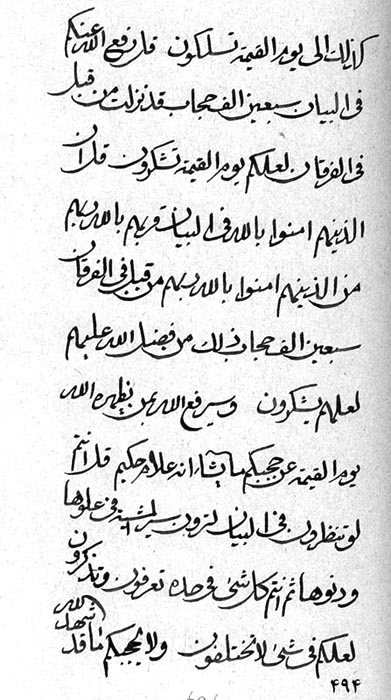 كذلك الى يوم القيمة تسلكون قل رفع الله عنكم
فى البيان سبعين الف حجاب قد نزلت من قبل
فى الفرقان لعلكم يوم القيمة تشكرون قل ان
الذينهم امنوا بالله فى البيان قربهم بالله ربهم
من الذينهم امنوا بالله ربهم من قبل فى الفرقان
سبعين الف حجاب ذلك من فضل الله عليهم
لعلهم يشكرون وسيرفع الله بمن يظهره الله
يوم القيمة عن حجبكم ما يشاء انه علام حكيم قل انتم
لو تنظرون فى البيان لترون سر المشية فى علوها
ودنوها ثم انتم كل شئ فى حده تعرفون وتذكرون
لعلكم فى شئ لا تختلفون ولا يحجبكم ما قد شهد الله
۴۹۴